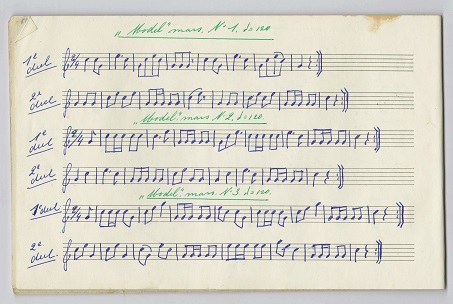 „Model" mars. № 1. ♩=120
1e deel
2e deel
„Model" mars № 2. ♩=120.
1e deel
2e deel
„Model" mars. № 3. ♩=120.
1e deel
2e deel.